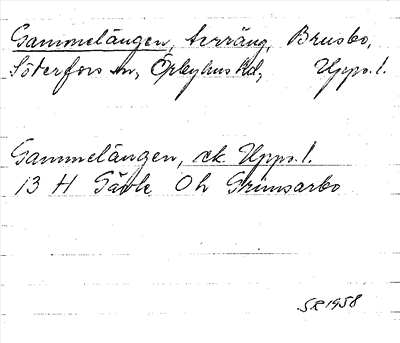 Gammelängen, terräng, Brusbo,
Söderfors sn, Örbyhus hd, Upps. l.
Gammelängen, ek Upps. l.
13 H Gävle Oh Grimsarbo
SR 1958